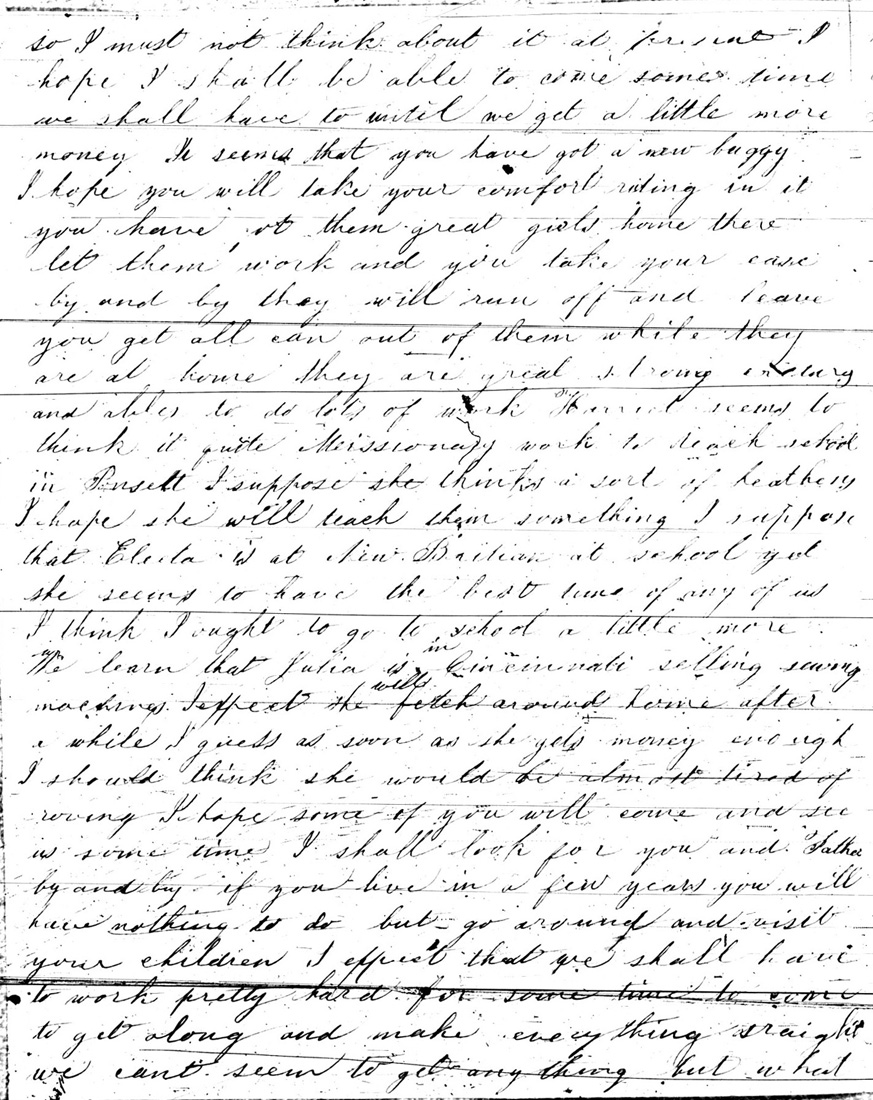 so I must not think about it at present I
hope I shall be able to come some time
we shall have to until we get a little more
money It seems that you have got a new buggy
I hope you will take your comfort riding in it
you have ot them great girls home there
let them work and you take your ease
by and by they will run off and leave
you get all can out of them while they
are at home they are great strong
and ables to do lots of work Harriet seems to
think it quite Missionary work to teach school
in I suppose she thinks a sort of heathens
I hope she will teach them something I suppose
that Electa is at New Britian at school yet
she seems to have the best time of any of us
I think I ought to go to school a little more
We learn that Julia is in Cincinnati selling sewing
machines I expect she will fetch around home after
a while I guess as soon as she gets money enough
I should think she would be almost tired of
roving I hope some of you will come and see
us some time I shall look for you and Father
by and by if you live in a few years you will
have nothing to do but go around and visit
your children I expect that we shall have
to work pretty hard for some time to come
to get along and make everything sraight
we cant seem to get any thing but what